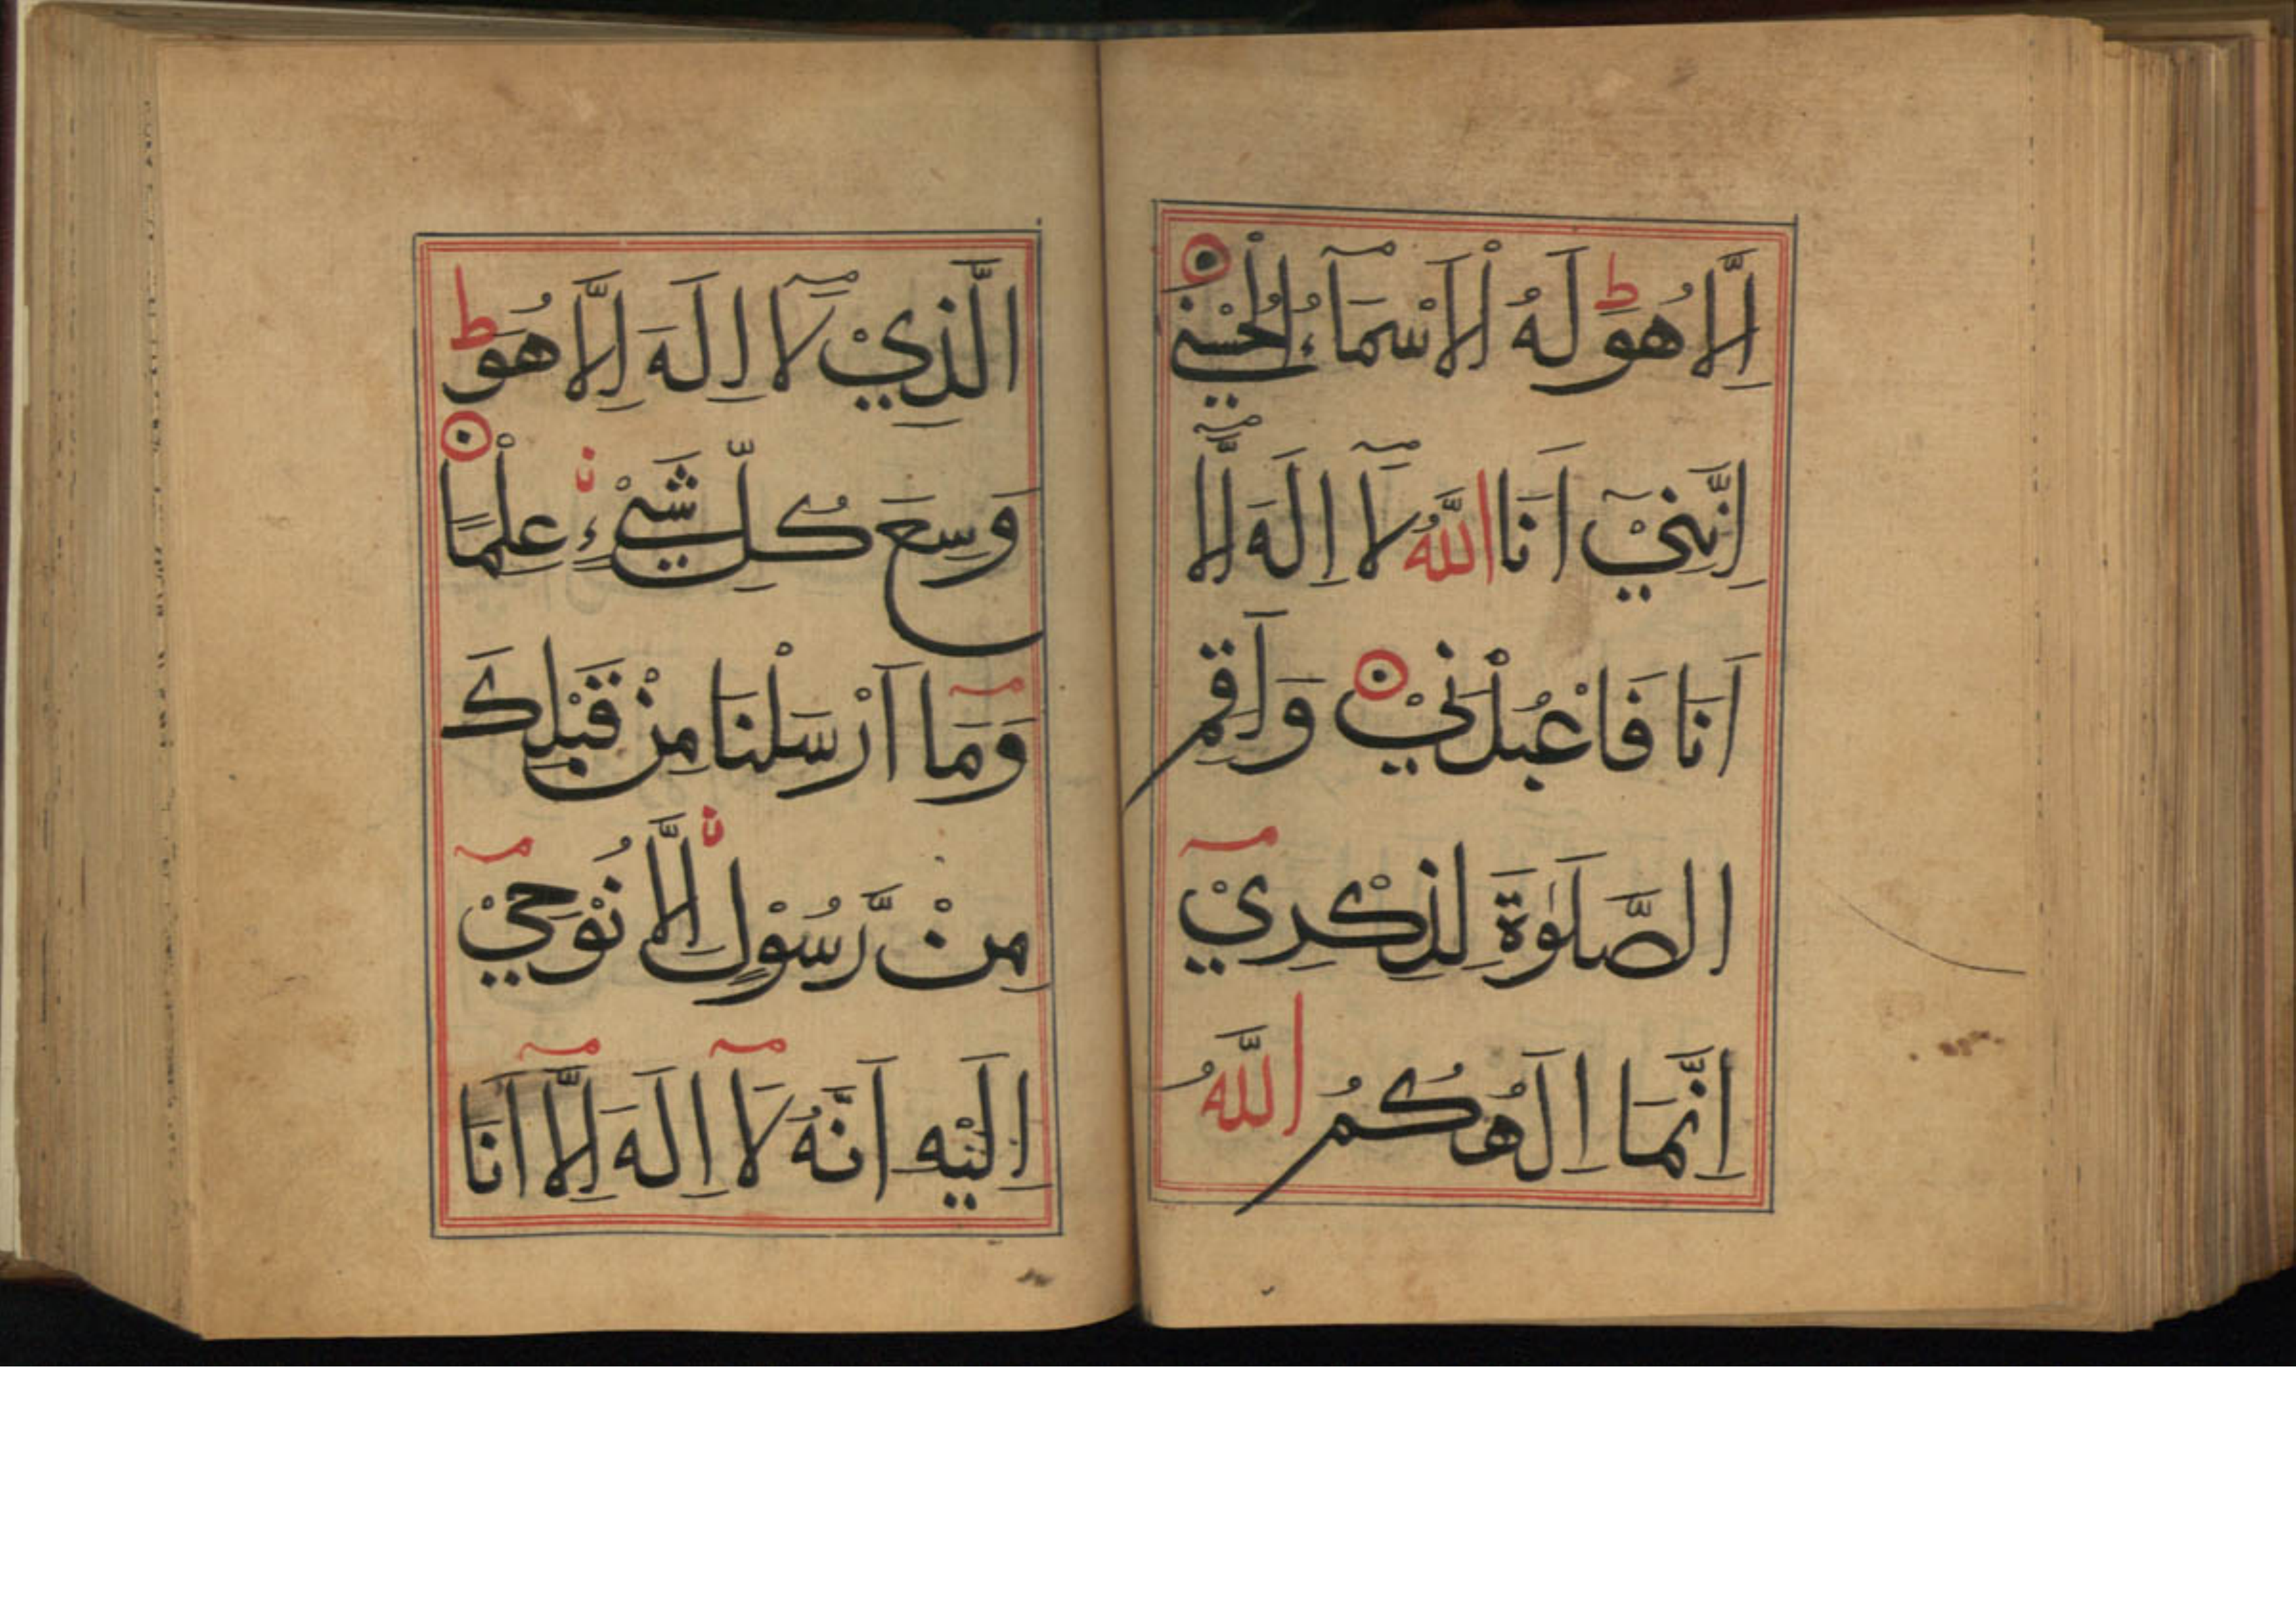 اِلَّا هُوَ ط لَهُ الْاَسْمَآءُ الْحُسْنٰی
اِنَّنِيْٓ اَنَا اللّٰهُ لَآ اِلٰهَ اِلَّآ
اَنَا فَاعْبُدْنِيْ وَاَقِمِ
الصَّلٰوةَ لِذِكْرِيْ
اِنَّمَا اِلٰهُكُمُ اللّٰهُ
الَّذِيْ لَآ اِلٰهَ اِلَّا هُوَ ط
وَسِعَ كُلَّ شَيْءٍ عِلْمًا
وَمَا اَرْسَلْنَا مِنْ قَبْلِكَ
مِنْ رَّسُوْلٍ اِلَّا نُوْحِيْ
اِلَيْهِ اَنَّهُ لَآ اِلٰهَ اِلَّآ اَنَا